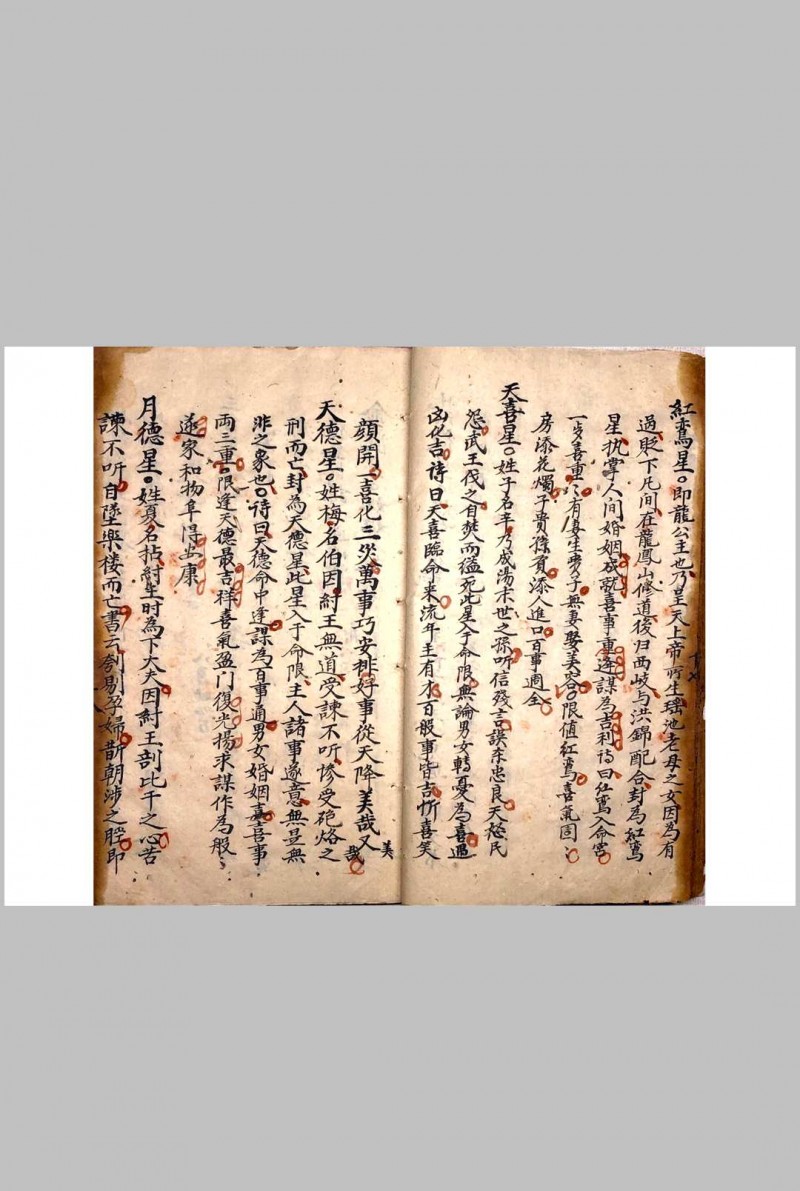 紅鸞星。即龍公主也乃是天上帝所生瑤池老母之女因為有
過貶下凡間在龍鳳山修道後归西岐与洪錦配合封為紅鸞
星执掌人間婚姻成就喜事重逢謀為吉利诗曰红鸾入命宮
一步喜重〻有妻生男子無妻娶美容限値紅鸞喜氣
房添花燭子貴孫賓添人進口百事週全
天喜星。姓子名辛乃成湯末世之孫听信殘言誤杀忠良天怒民
怨武王伐之自焚而死此星入于命限無論男女轉憂為喜遇
凶化吉诗曰天喜臨命来流年主有才百般事皆吉忻喜笑
顔開一喜化三災萬事巧安排好事從天降美哉又美哉
天德星。姓梅名伯因紂王無道受諫不听惨受砲烙之
刑而亡封為天德星此星入于命限主人諸事遂意無是無
非之象也诗曰天德命中逢謀為百事通男女婚姻喜事
両三重限逢天德最吉祥喜氣盈门復光揚求謀作為般〻
遂家和物阜得安康
月德星。姓夏名招紂王时為下大夫因紂王剖比干之心苦
諫不听自墜樂楼而亡書云刳剔孕婦斮朝涉之脛即